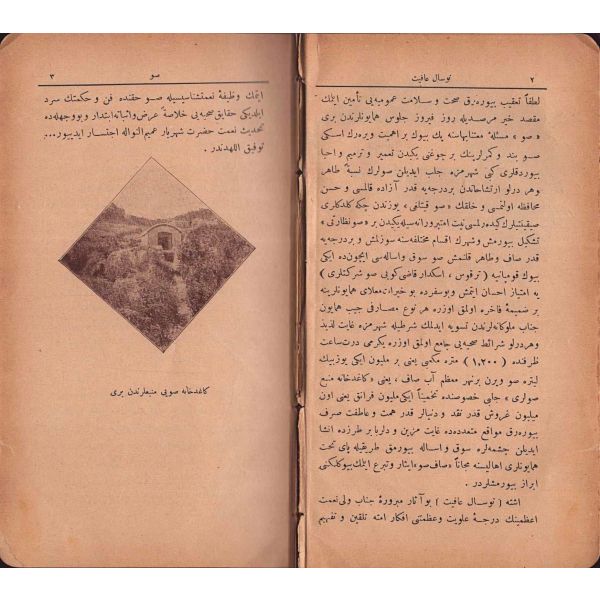 ٢ توسال عافیت
لطفاً تعقیب بیوره‌رق صحت و سلامت عمومیه‌یی تأمین ایتمك
مقصد خیر مرصدیله روز فیروز جلوس همایونلرندن بری
« صو » مسئلهٔ معتنابهاسنه پك بیوك بر اهمیت ویره‌رك اسكی
صو بند و كمرلرینك بر چوغنی یكیدن تعمیر و ترمیم و احیا
بیوردقلری كبی شهرمزه جلب ایدیلن صولرك نسبةً طاهر
وهر درلو ارتشاحاتدن بردرجه‌یه قدر آزاده قالمسی و حسن
محافظه اولنمسی و خلقك « صو قیتلغی » یوزندن چكه كلدكلری
صیقنتیلرك كیده‌رلمسی نیت امنیورانه‌سیله یكیدن بر « صو نظارتی »
تشكیل بیورمش وشهرك اقسام مختلفه‌سنه سوزلمش و بردرجه‌یه
قدر صاف وطاهر قلنمش صو سوق واساله‌سی ایچون‌ده ایكی
بیوك قومپانیه ( ترقوس ، اسكدار قاضی كویی صو شركتلری )
یه امتیاز احسان ایتمش وبوسفرده بو خیرات معلای همایونلرینه
بر ضمیمهٔ فاخره اولمق اوزره هر نوع مصارفی جیب همایون
جناب ملوكانه‌لرندن تسویه ایدلمك شرطیله شهرمزه غایت لذیذ
وهر درلو شرائط صحیه‌یی جامع اولمق اوزره یكرمی درت ساعت
ظرفنده (١,٢٠٠) متره مكعبی یعنی بر ملیون ایكی یوز بیك
لیتره صو ویرن بر نهر معظم آب صاف ، یعنی « كاغدخانه منبع
صولری » جلبی خصوصنده تخمیناً ایكی ملیون فرانق یعنی اون
میلیون غروش قدر نقد و دنیالر قدر همت و عاطفت صرف
بیوره‌رق مواقع متعدده‌ده غایت مزین و دلربا بر طرزده انشا
ایدیلن چشمه‌لره سوق واساله بیورمق طریقیله پای تخت
همایونلری اهالیسنه مجاناً « صاف صو » ایثار وتبرع ایتمك بیوكلكنی
ابراز بیورمشلردر .
اشته ( توسال عافیت ) بو آثار مبرورهٔ جناب ولی نعمت
اعظمینك درجهٔ علویت وعظمتنی افكار امته تلقین و تفهیم
صو ٣
ایتمك وظیفهٔ نعمتشناسیسیله صو حقنده فن و حكمتك سرد
ایلدیكی حقایق صحیه‌یی خلاصةً عرض واثباته ابتدار وبووجهله‌ده
تحدیث نعمت حضرت شهریار عمیم النواله اجتسار ایدییور...
توفیق اللهدندر .
كاغدخانه صویی منبعلرندن بری